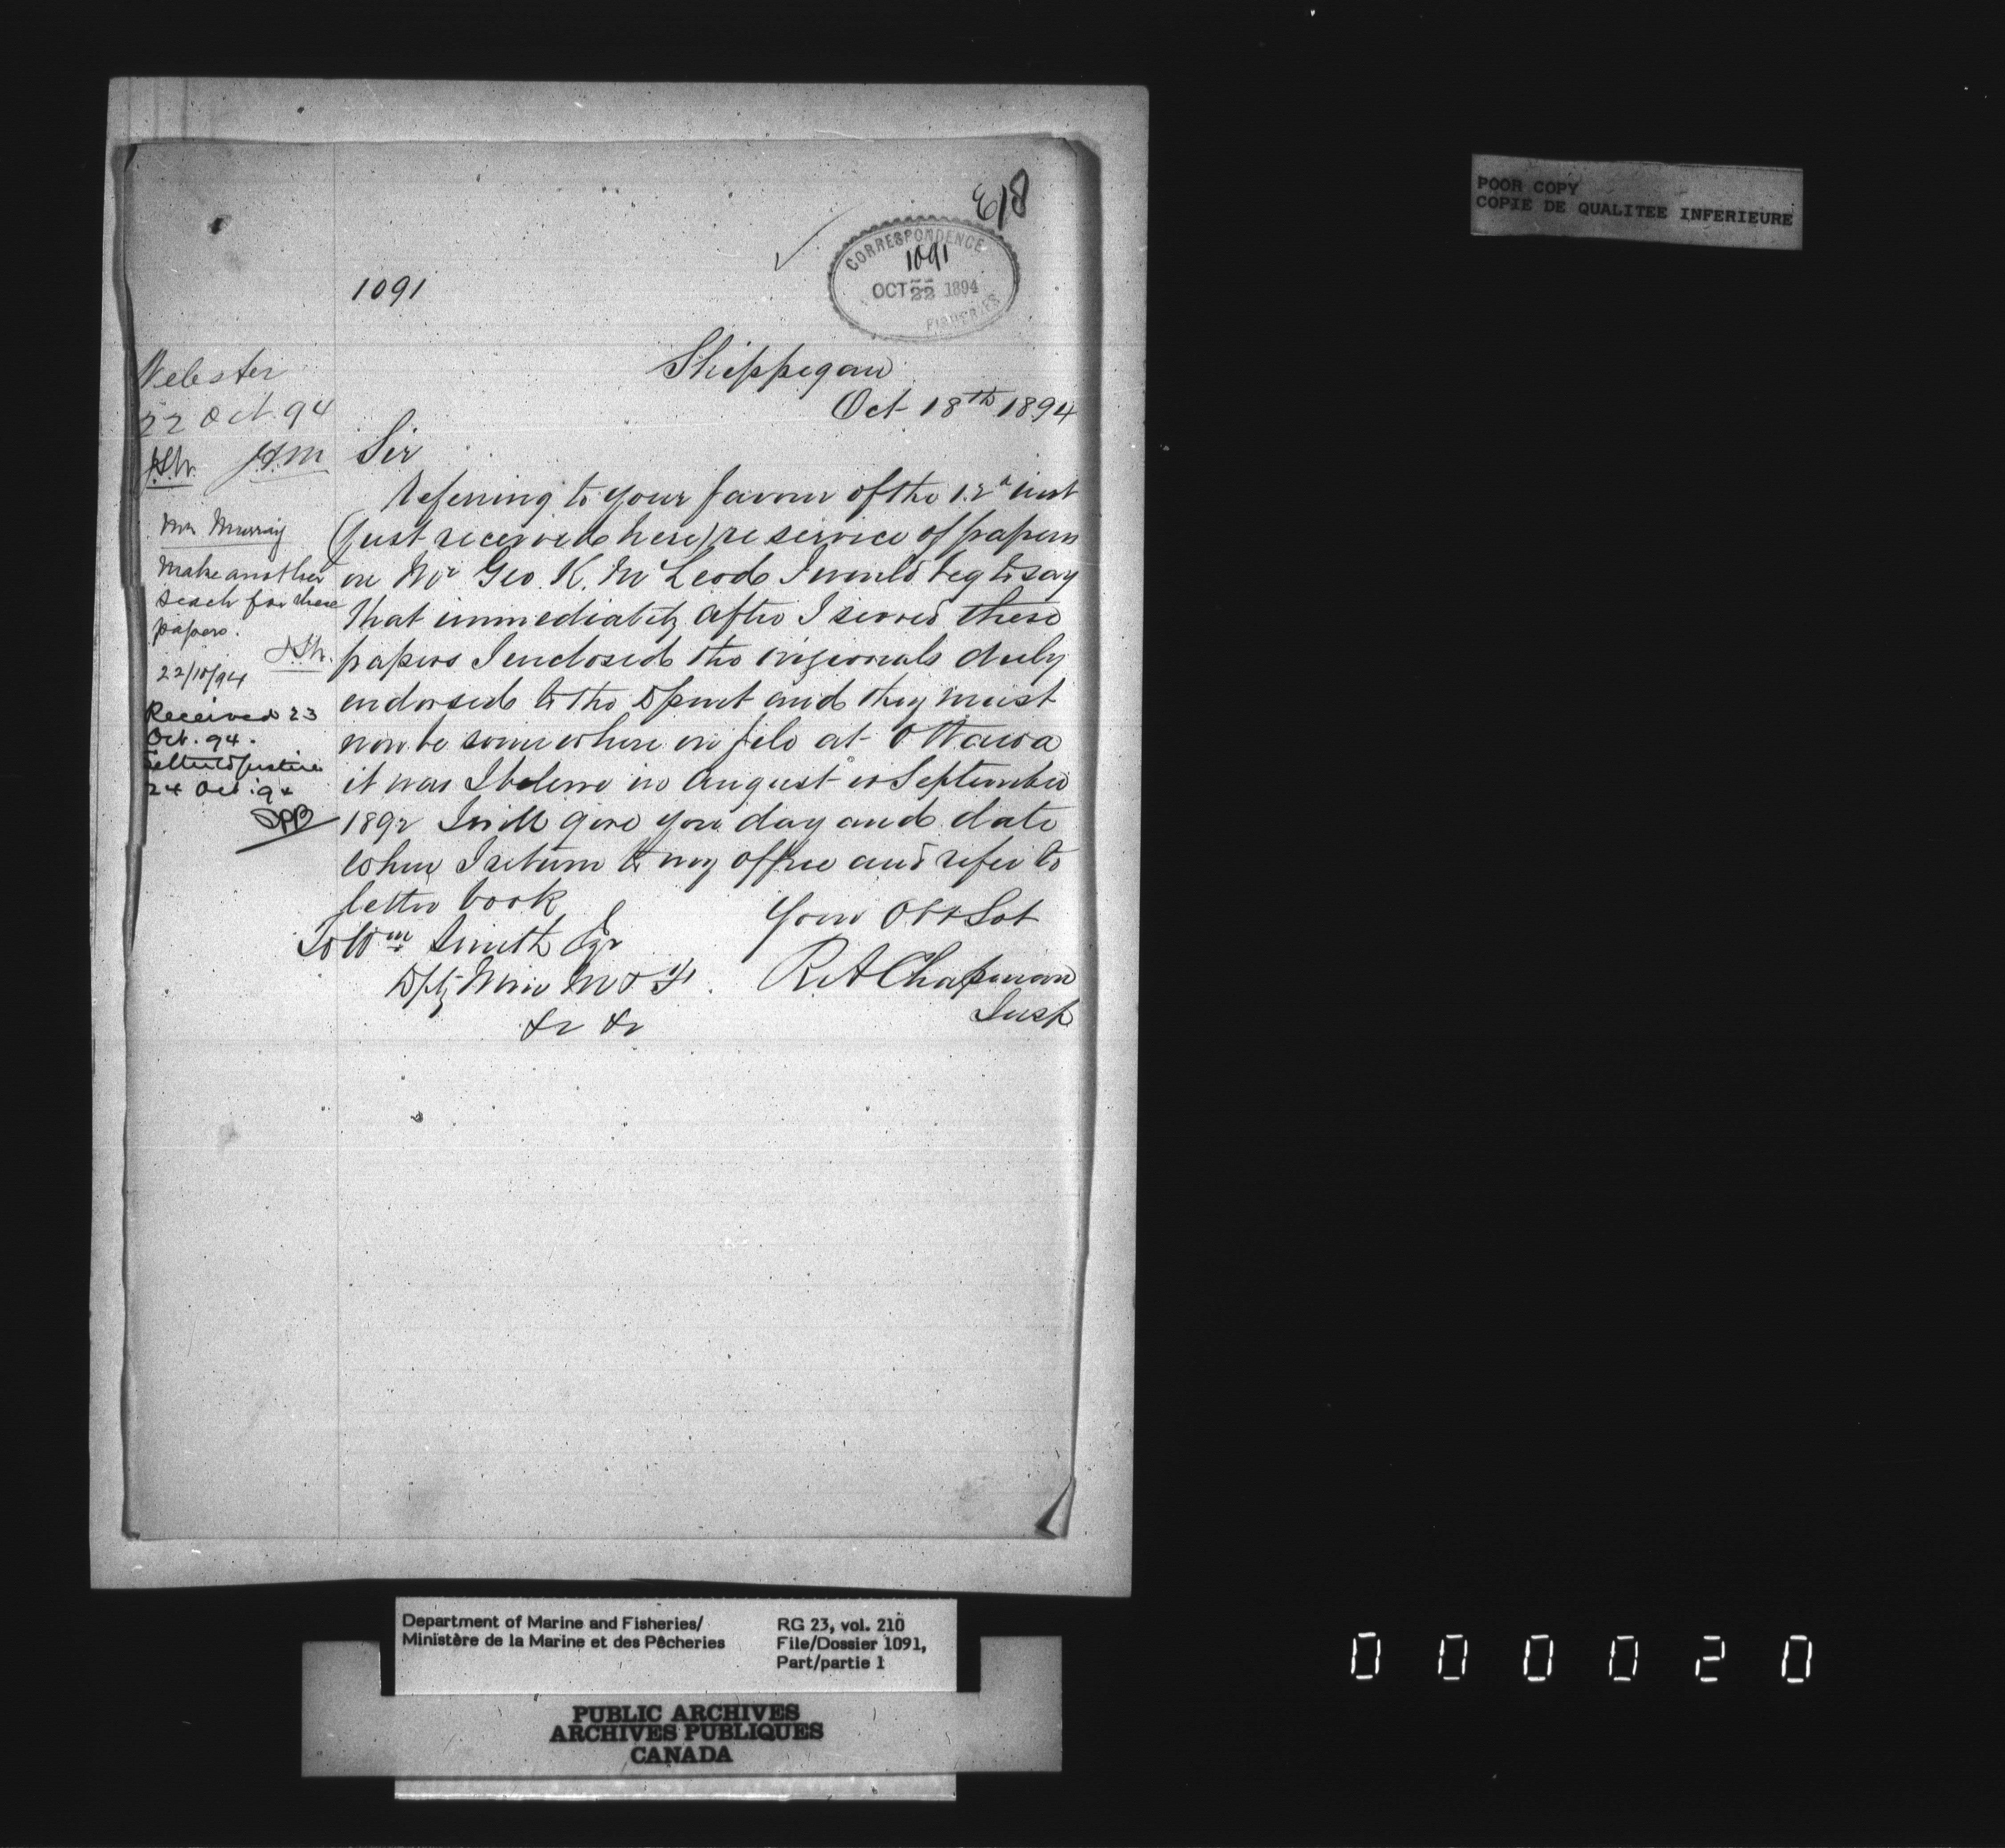 618
CORRESPONDENCE
1091
OCT 22 1894
FISHERIES
1091
Shippegan
Oct 18th 1894
Webster
22 Oct. 94
Mr Murray
Make another
seach for these
papers.
22/10/94
Received 23
Oct. 94.
24 Oct. 94
Sir
Referring to your favour of the 12th inst
(just received here) re service of papers
on Mr Geo. K. McLeod I would beg to say
that immediately after I served these
papers I enclosed the originals duly
endorsed to the Dpmt and they must
now be somewhere on file at Ottawa
it was I beleive in August or September
1892 I will give you day and date
when I return to my office and refer to
letter book
Your Obt Svt
R A Chapman
Insp
To Wm Smith Esqr
Dpty Min M & F.
&c &c
POOR COPY
COPIE DE QUALITEE INFERIEURE
Department of Marine and Fisheries/
Ministère de la Marine et des Pêcheries
RG 23, vol. 210
File/Dossier 1091,
Part/partie 1
PUBLIC ARCHIVES
ARCHIVES PUBLIQUES
CANADA
0 0 0 0 2 0